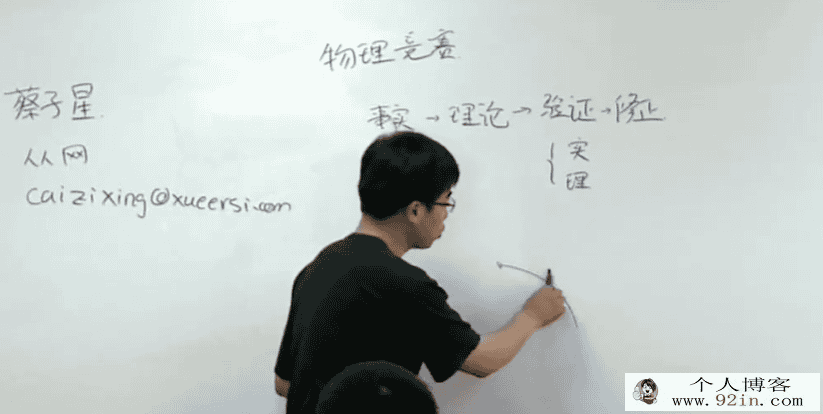 物理竞赛
蔡子星
事实→理论→验证→修正
人人网
{实
理
caizixing@xueersi.com
个人博客
www.92in.com